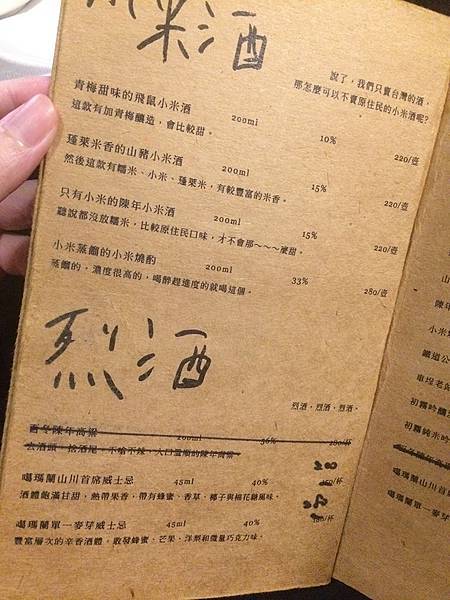 小米酒
說了,我們只賣台灣的酒,
那怎麼可以不賣原住民的小米酒呢?
青梅甜味的飛鼠小米酒 200ml 10% 220/壺
這款有加青梅釀造,會比較甜。
蓬萊米香的山豬小米酒 200ml 15% 220/壺
然後這款有糯米、小米、蓬萊米,有較豐富的米香。
只有小米的陳年小米酒 200ml 15% 220/壺
聽說都沒放糯米,比較原住民口味,才不會那~~~麼甜。
小米蒸餾的小米燒酌 200ml 33% 280/壺
蒸餾的,濃度很高的,喝醉趕進度的就喝這個。
烈酒
烈酒,烈酒,烈酒。
陳年高粱 200ml 36%
去酒頭,捨酒尾,不嗆不辣,入口置順的陳年高粱
噶瑪蘭山川首席威士忌 45ml 40% /杯
酒體飽滿甘甜,熱帶果香,帶有蜂蜜、香草、椰子與棉花糖風味。
噶瑪蘭單一麥芽威士忌 45ml 40% /杯
豐富層次的辛香酒體,散發蜂蜜、芒果、洋梨和微量巧克力味。
陳年
小米
鐵道公
車埕老
初霧吟釀
初霧純米吟
噶瑪蘭山川
噶瑪蘭單一